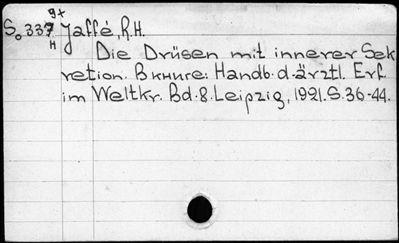 9+
So 337 Jaffé, R.H.
H
Die Drüsen mit innerer Sek
retion. В книге: Handb. d. ärztl. Erf.
im Weltkr. Bd. 8. Leipzig, 1921. S. 36-44.